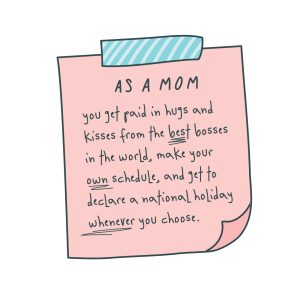 AS A MOM
you get paid in hugs and
kisses from the best bosses
in the world, make your
own schedule, and get to
declare a national holiday
whenever you choose.